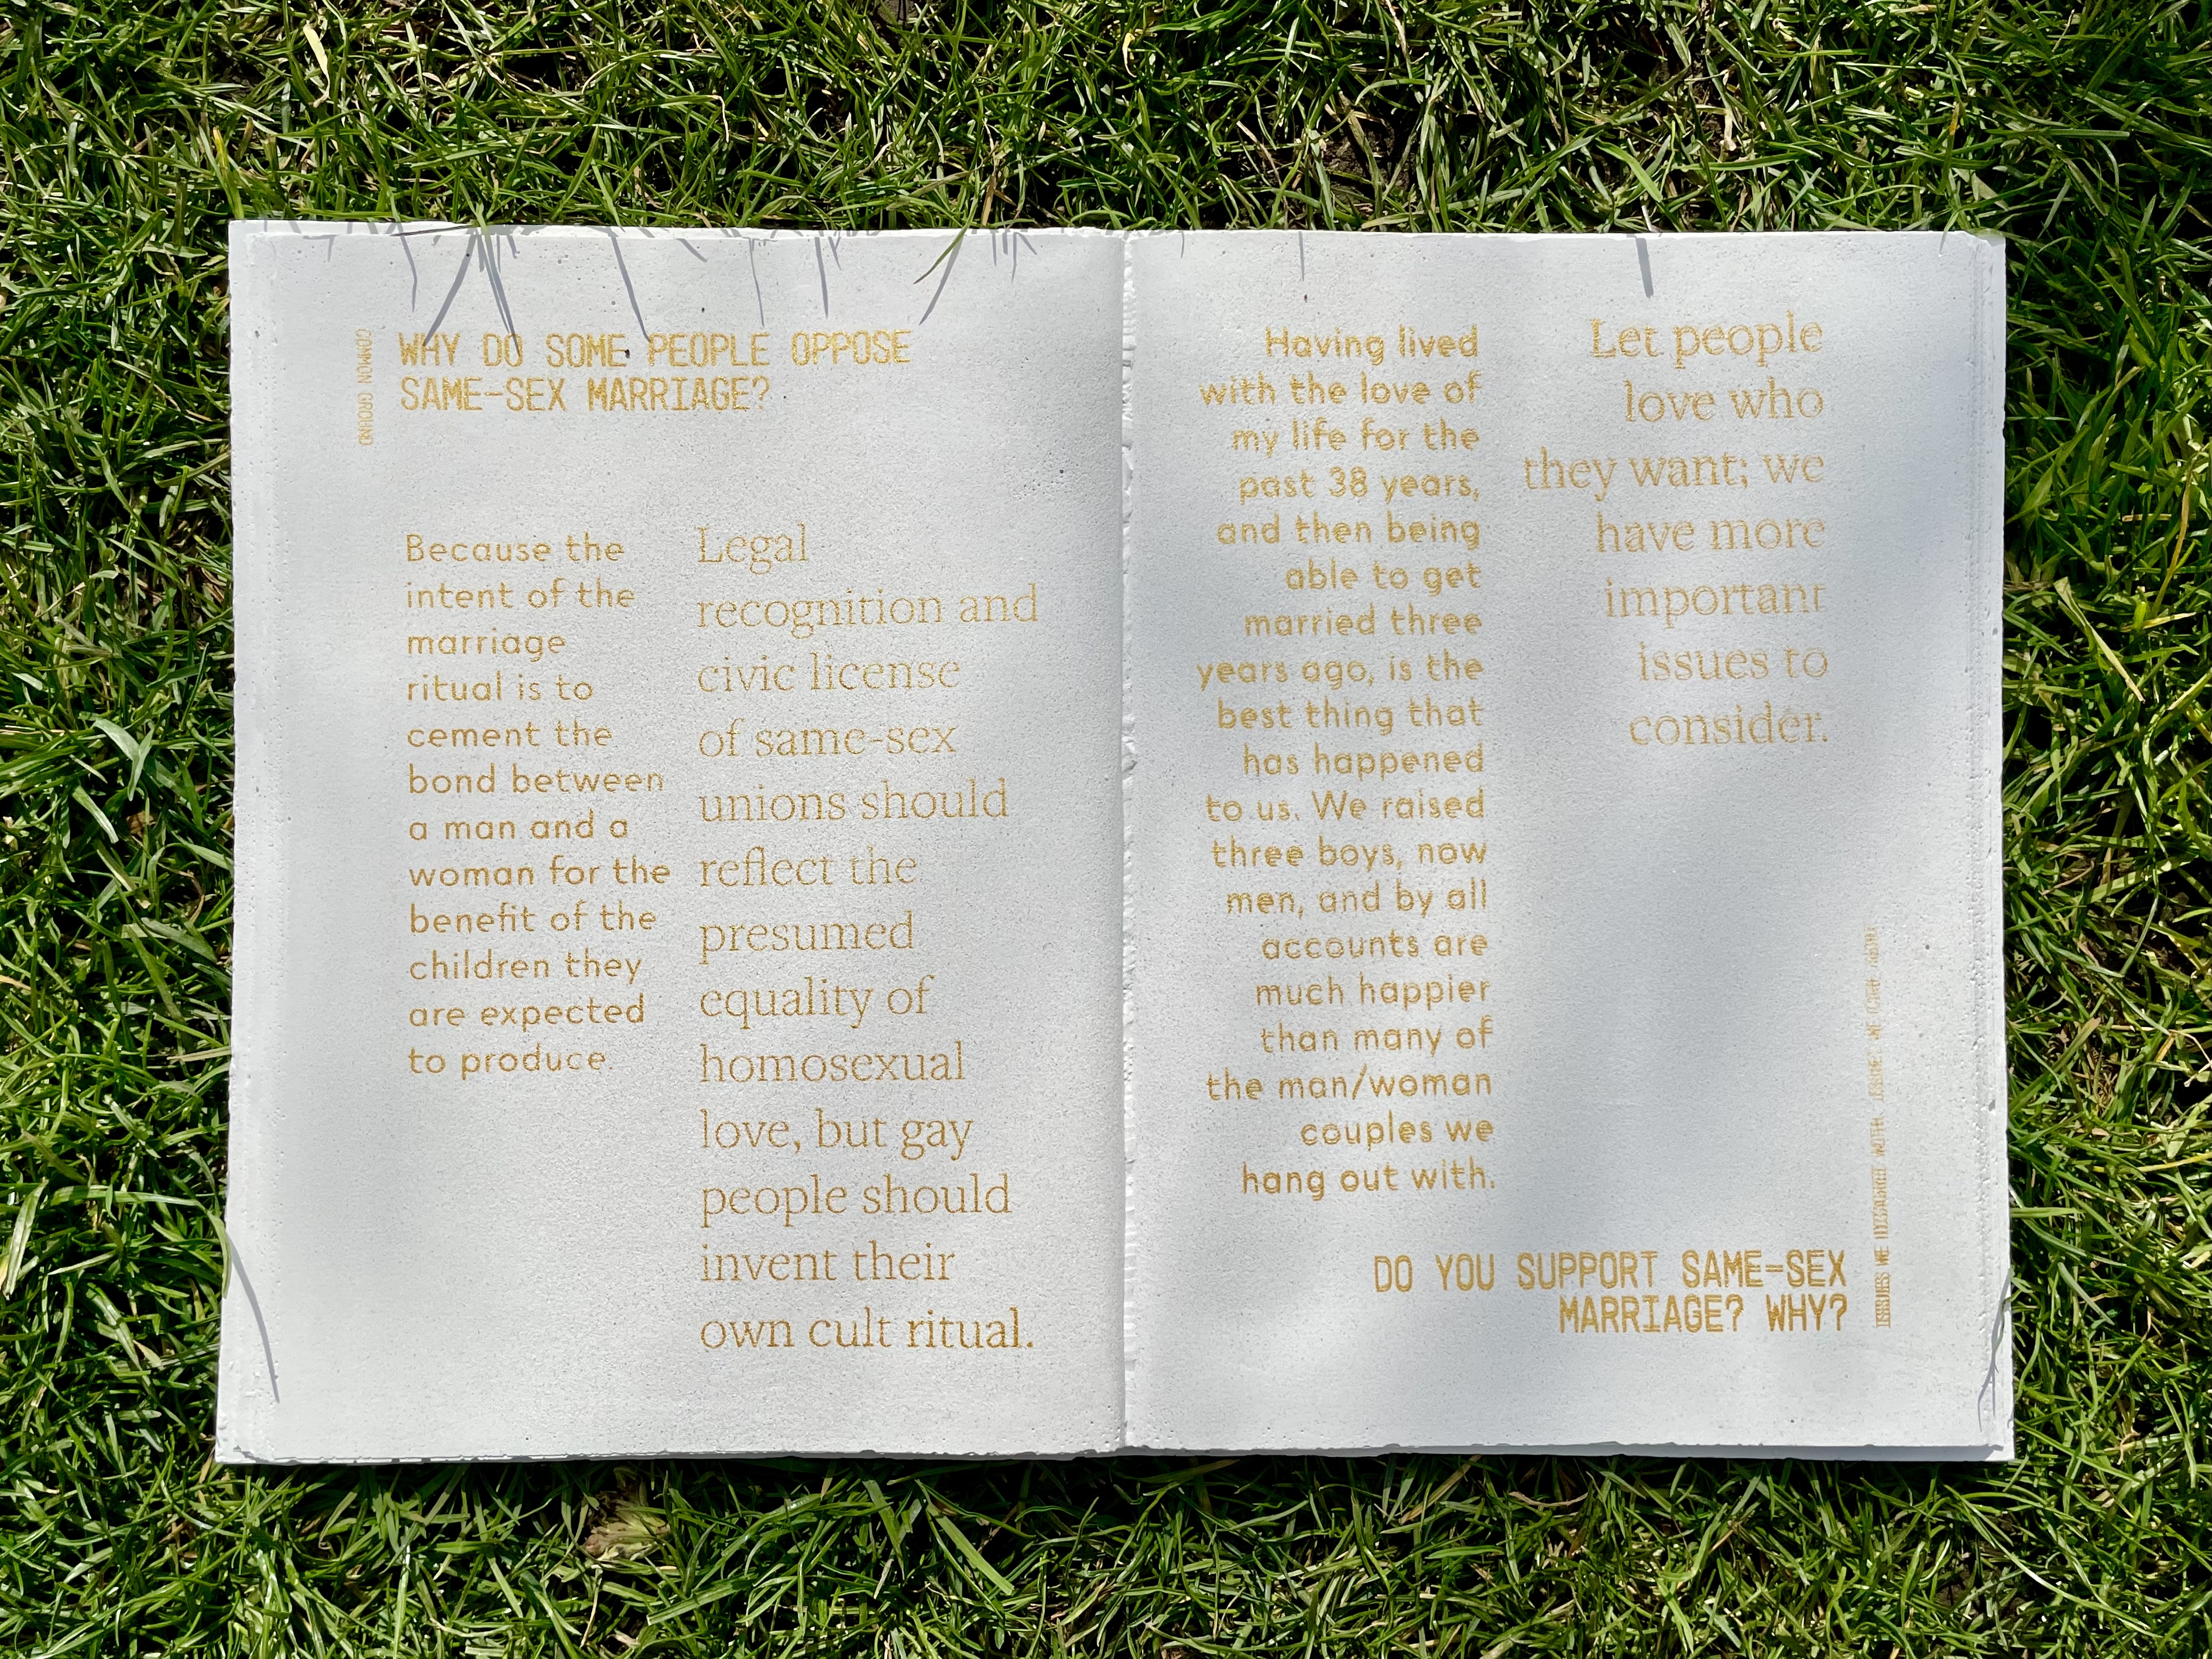 COMMON GROUND
WHY DO SOME PEOPLE OPPOSE
SAME-SEX MARRIAGE?
Because the
intent of the
marriage
ritual is to
cement the
bond between
a man and a
woman for the
benefit of the
children they
are expected
to produce.
Legal
recognition and
civic license
of same-sex
unions should
reflect the
presumed
equality of
homosexual
love, but gay
people should
invent their
own cult ritual.
Having lived
with the love of
my life for the
past 38 years,
and then being
able to get
married three
years ago, is the
best thing that
has happened
to us. We raised
three boys, now
men, and by all
accounts are
much happier
than many of
the man/woman
couples we
hang out with.
Let people
love who
they want; we
have more
important
issues to
consider.
DO YOU SUPPORT SAME-SEX
MARRIAGE? WHY?
ISSUES WE DISAGREE WITH, ISSUES WE CARE ABOUT